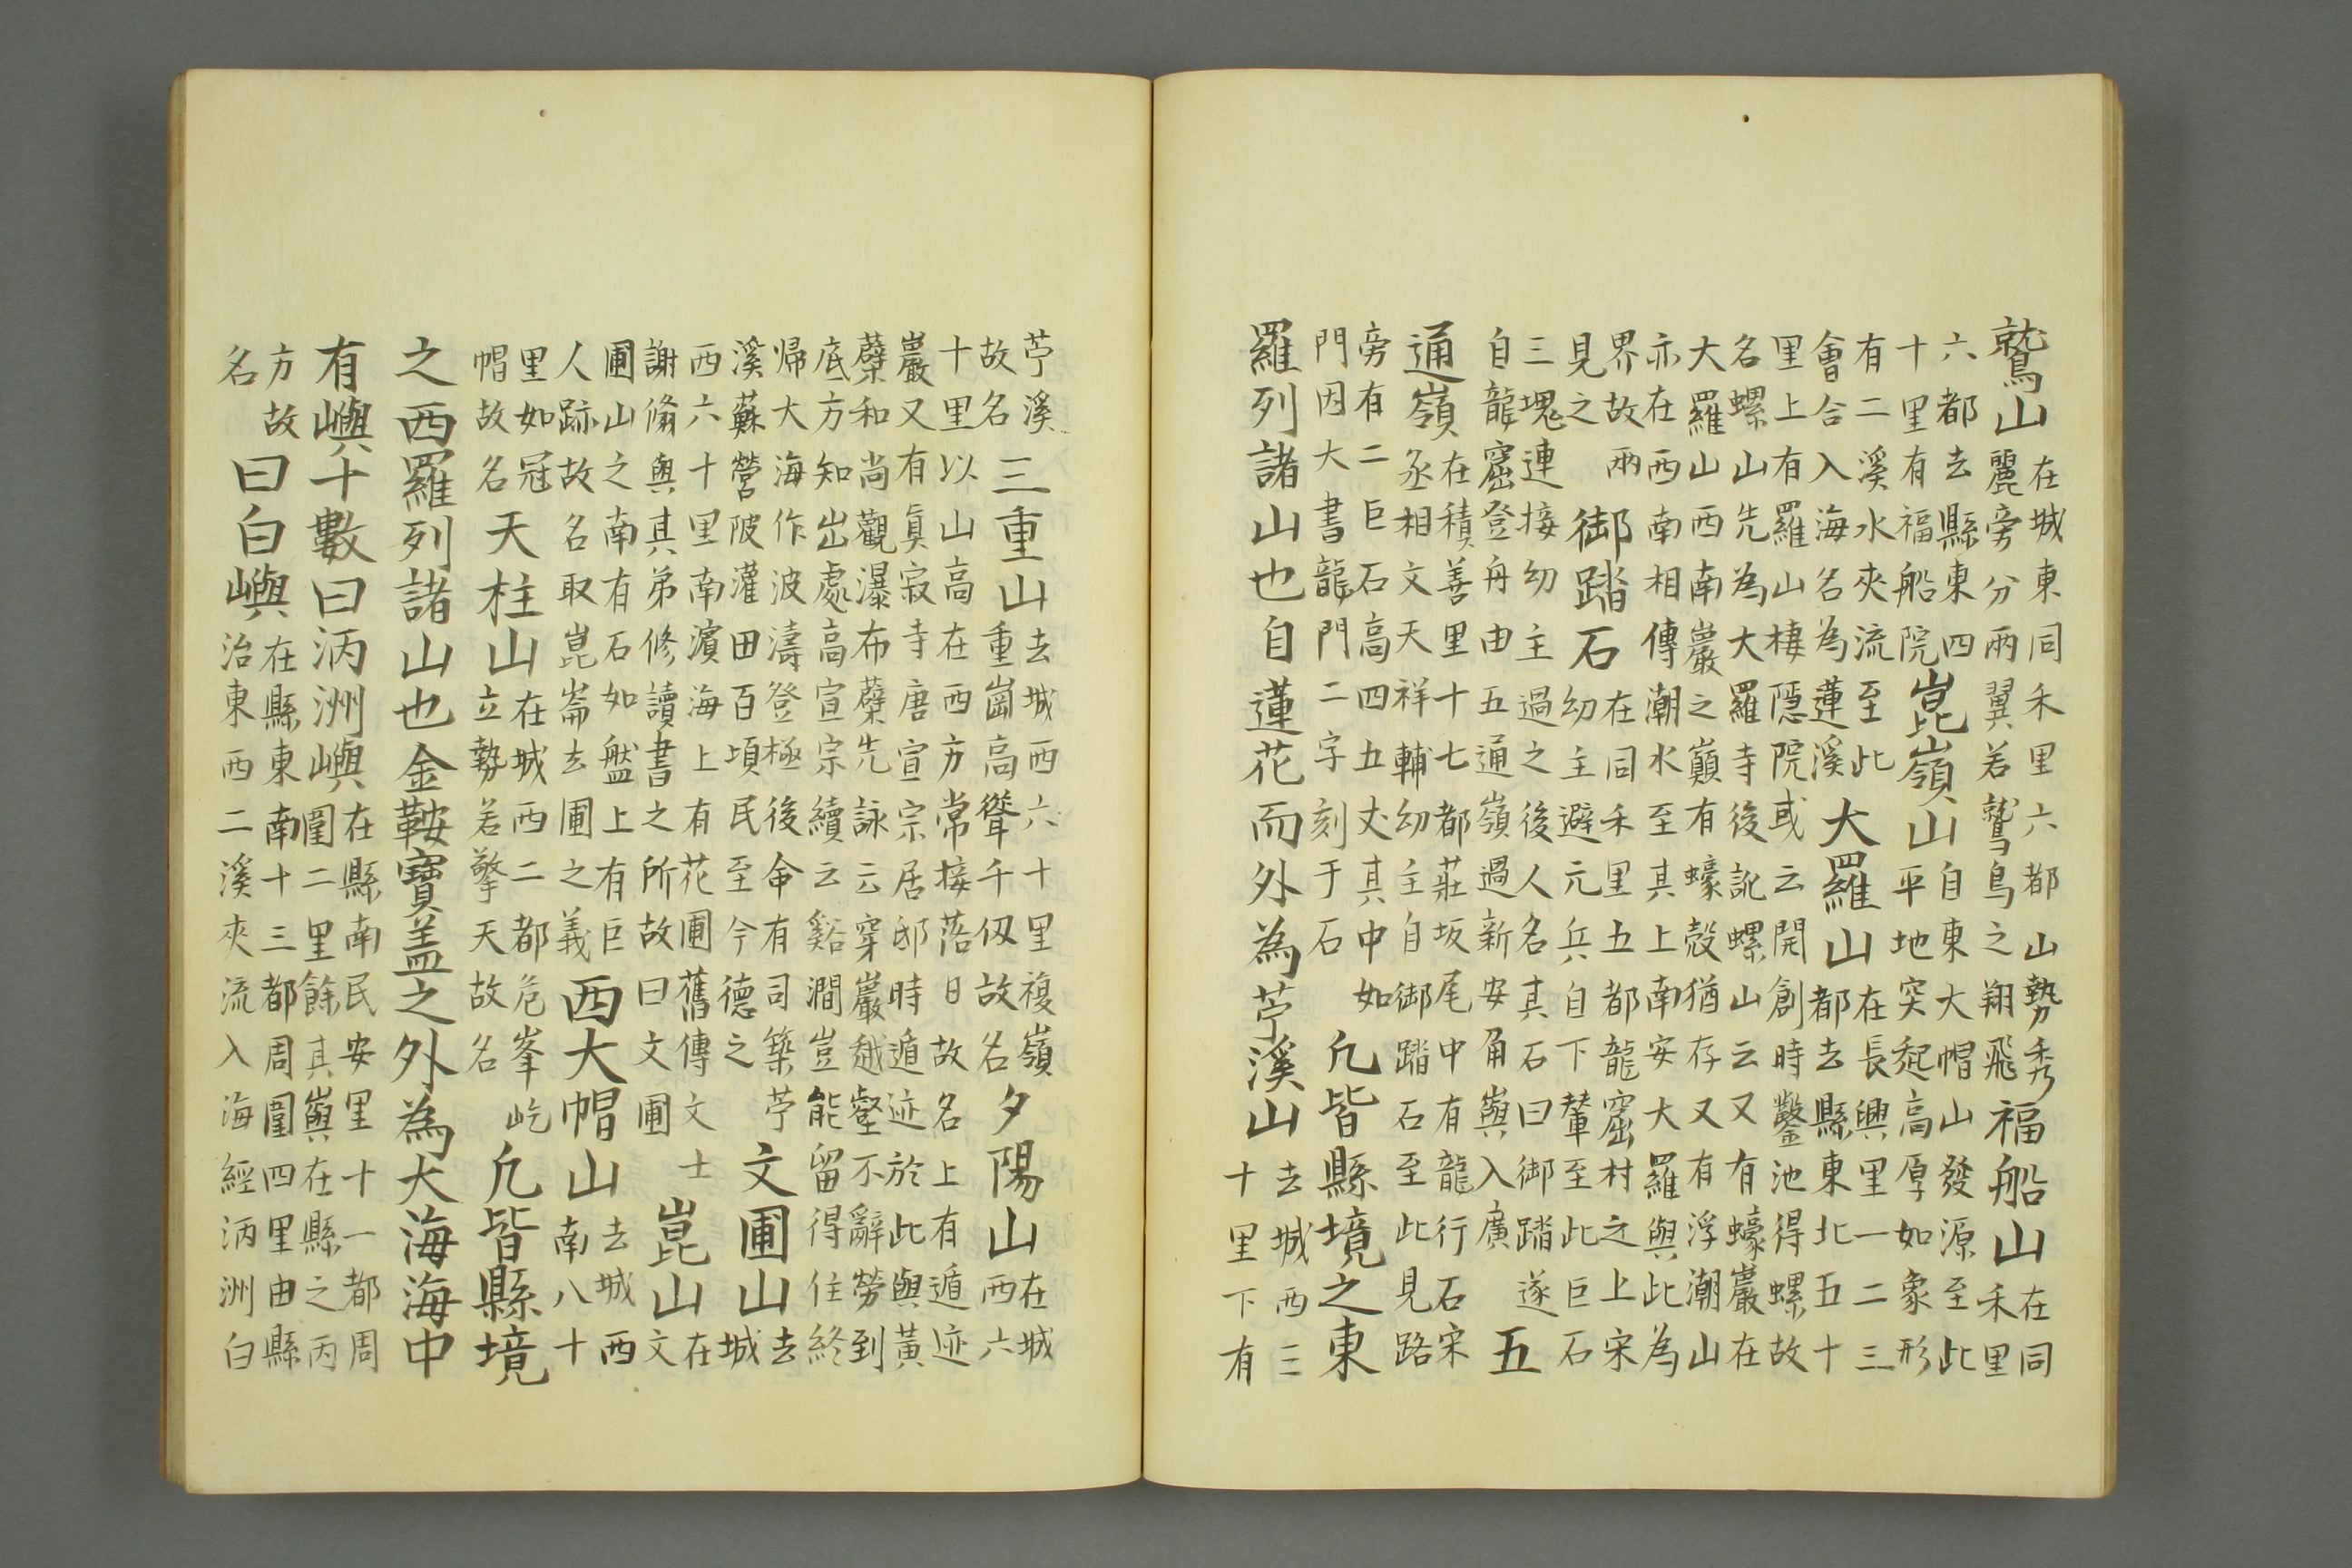 鷲山
在城東同禾里六都山勢秀
麗旁分兩翼若鷲鳥之翔飛
福船山
在同
禾里
六都去縣東四
十里有福船院
崑嶺山
自東大帽山發源至此
平地突起高厚如象形
有二溪水夾流至此
會合入海名為蓮溪
大羅山
在長興里一二三
都去縣東北五十
里上有羅山棲隱院或云開創時鑿池得螺故
名螺山先為大羅寺後訛螺山云又有蠔巖在
大羅山西南巖之巔有蠔殼猶存又有浮潮山
亦在西南相傳潮水至其上南安大羅與此為
界故兩
見之
御踏石
在同禾里五都龍窟村之上宋
幼主避元兵自下輦至此巨石
三塊連接幼主過之後人名其石曰御踏遂
自龍窟登舟由五通嶺過新安甬嶼入廣
五
通嶺
在積善里十七都莊坂尾中有龍行石宋
丞相文天祥輔幼主自御踏石至此見路
旁有二巨石高四五丈其中如
門因大書龍門二字刻于石
凡皆縣境之東
羅列諸山也自蓮花而外為苧溪山
去城西三
十里下有
苧溪
故名
三重山
去城西六十里複嶺
重崗高聳千仭故名
夕陽山
在城
西六
十里以山高在西方常接落日故名上有遁迹
巖又有真寂寺唐宣宗居邸時遁迹於此與黃
蘗和尚觀瀑布蘗先詠云穿巖越壑不辭勞到
底方知出處高宣宗續云谿澗豈能留得住終
帰大海作波濤登極後命有司築苧
溪蘇營陂灌田百頃民至今德之
文圃山
去
城
西六十里南濱海上有花圃舊傳文士
謝翛與其弟修讀書之所故曰文圃
崑山
在
文
圃山之南有石如盤上有巨
人跡故名取崑崙去圃之義
西大帽山
去城西
南八十
里如冠
帽故名
天柱山
在城西二都危峯屹
立勢若擎天故名
凡皆縣境
之西羅列諸山也金鞍寶盖之外為大海海中
有嶼十數曰洲嶼
在縣南民安里十一都周
圍二里餘其嶼在縣之丙
方故
名
曰白嶼
在縣東南十三都周圍四里由縣
治東西二溪夾流入海經洲白